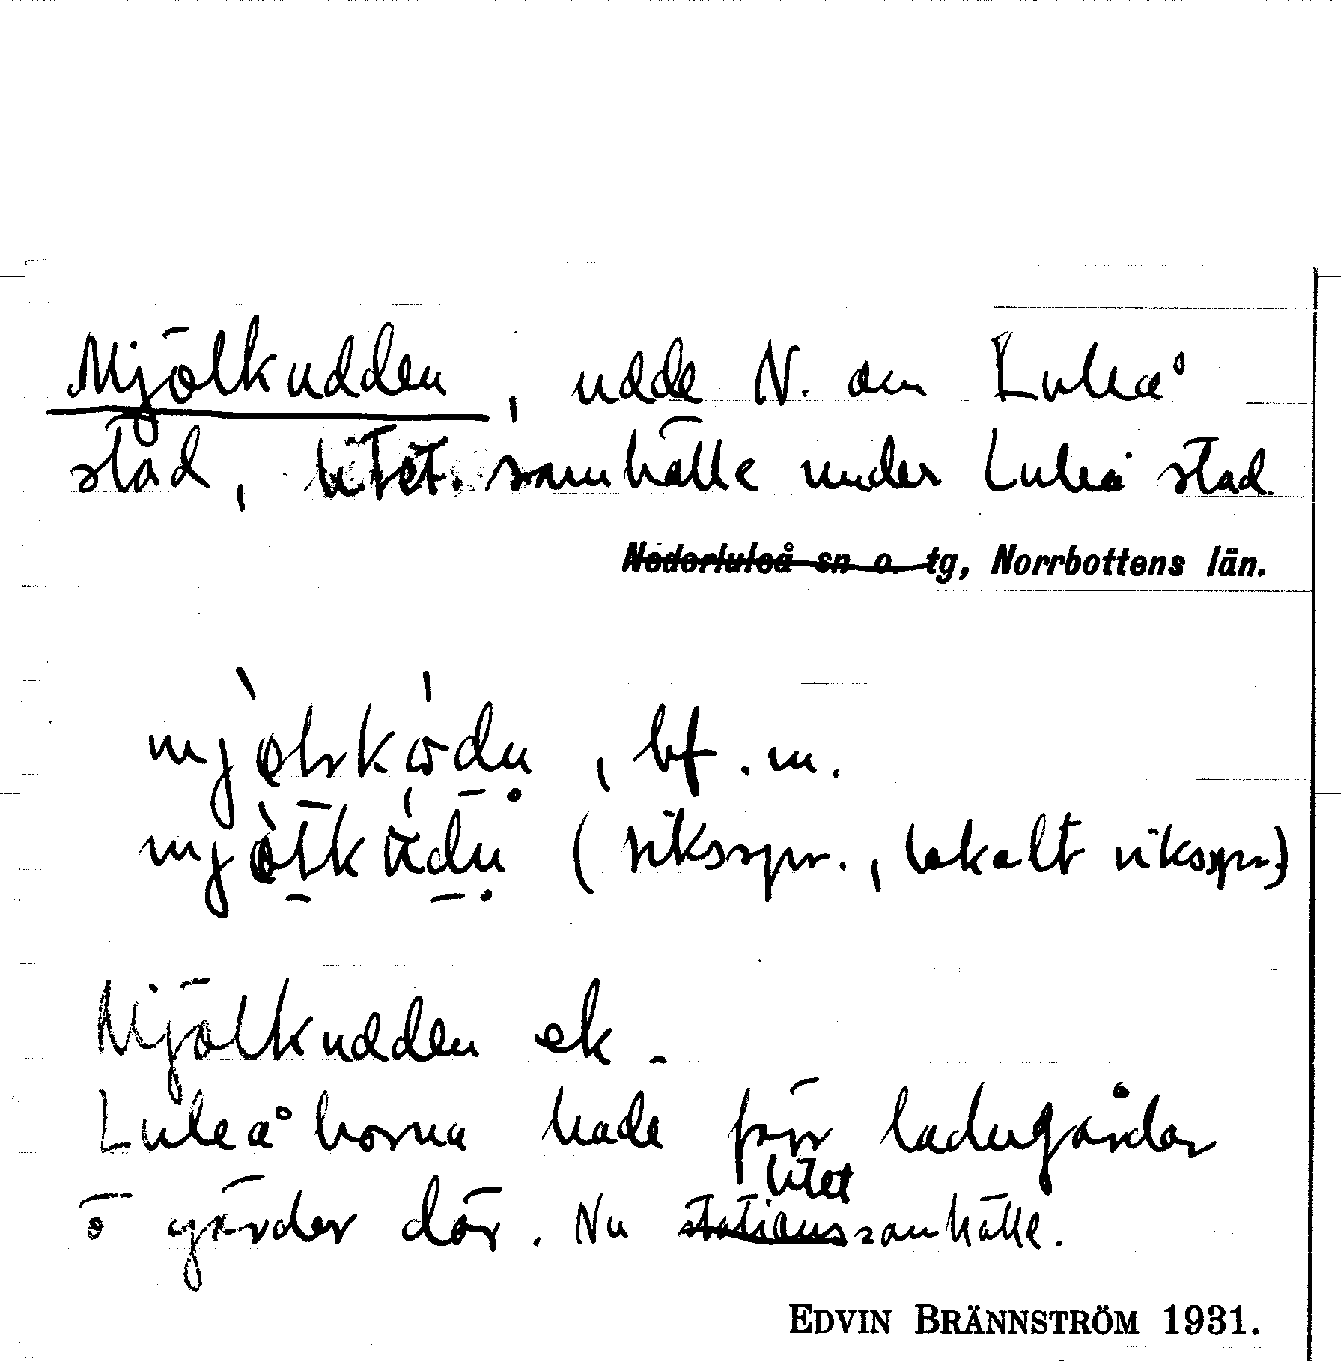 Mjölkudden, udde N. om Luleå
stad, litet samhälle under Luleå stad.
Nederluleå sn o. tg, Norrbottens län.
, bf. m.
(riksspr., lokalt riksspr.)
Mjölkudden ek.
Luleåborna hade förr ladugårdar
o gärder där. Nu stationssamhälle.
litet
EDVIN BRÄNNSTRÖM 1931.